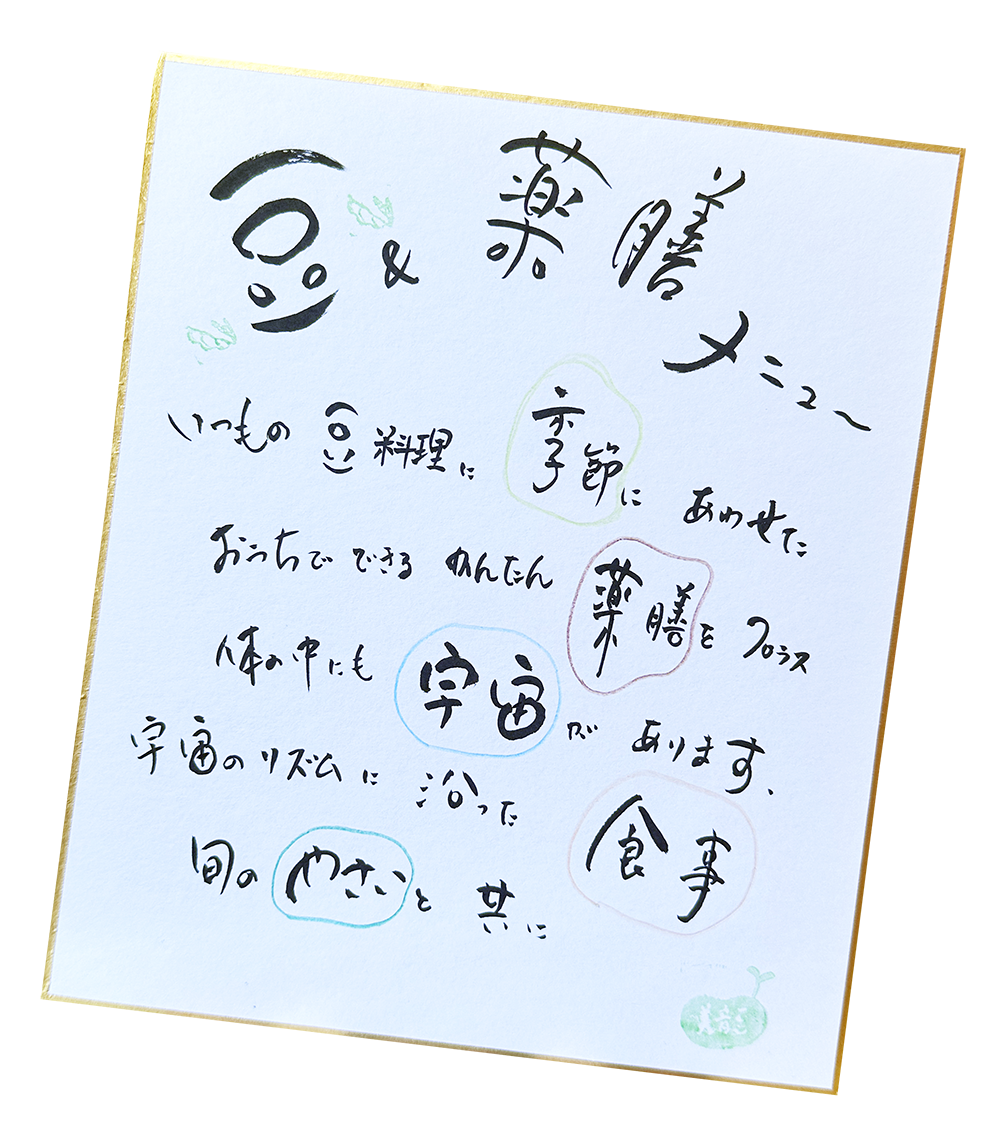 豆 & 薬膳
メニュー
いつもの 豆料理に 季節に あわせた
おうちで できる かんたん 薬膳を プラス
体の中にも 宇宙が あります、
宇宙のリズムに 沿った 食事
旬の やさいと 共に